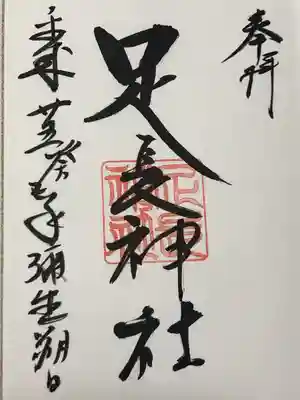 奉拝
足長神社
平成 癸巳年彌生朔日